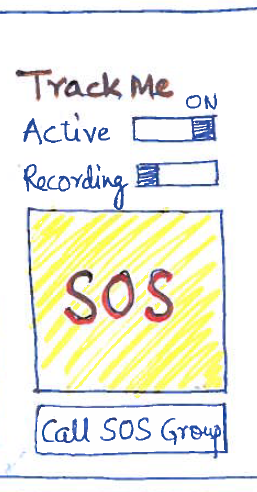 Track Me
ON
Active
Recording
SOS
Call SOS Group